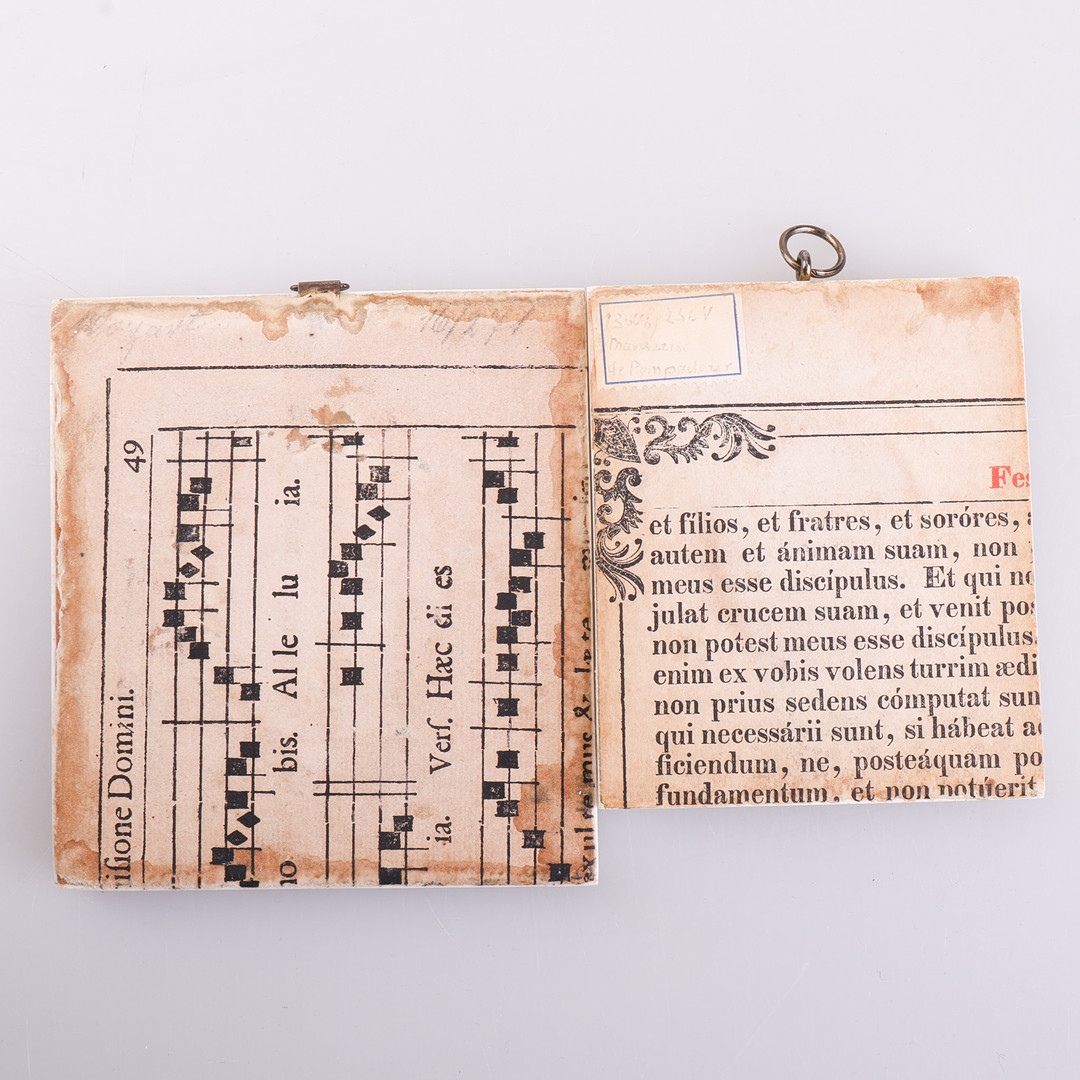 49
iſione Domini.
bis. Al le lu ia.
no
Verſ. Hæc di es
ia.
Fes
et fílios, et fratres, et soróres,
autem et ánimam suam, non
meus esse discípulus. Et qui no
julat crucem suam, et venit pos
non potest meus esse discípulus.
enim ex vobis volens turrim ædi
non prius sedens cómputat sum
qui necessárii sunt, si hábeat ad
ficiendum, ne, posteáquam po
fundamentum, et non potúerit